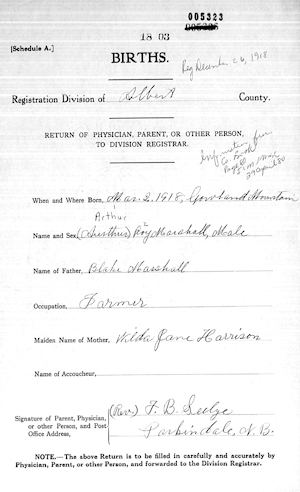 005323
18 03
[Schedule A.]
BIRTHS.
Reg December 26, 1918
Registration Division of Albert County.
RETURN OF PHYSICIAN, PARENT, OR OTHER PERSON,
TO DIVISION REGISTRAR.
Information from
Co. Book
Page
29 April 80
When and Where Born, Mar. 2, 1918, Gowland Mountain
Arthur
Name and Sex, Roy Marshall, Male
Name of Father, Blake Marshall
Occupation, Farmer
Maiden Name of Mother, Wilda Jane Harrison
Name of Accoucheur,
Signature of Parent, Physician,
or other Person, and Post
Office Address,
(Rev.) F. B. Seelye
Parkindale, N. B.
NOTE.—The above Return is to be filled in carefully and accurately by
Physician, Parent, or other Person, and forwarded to the Division Registrar.